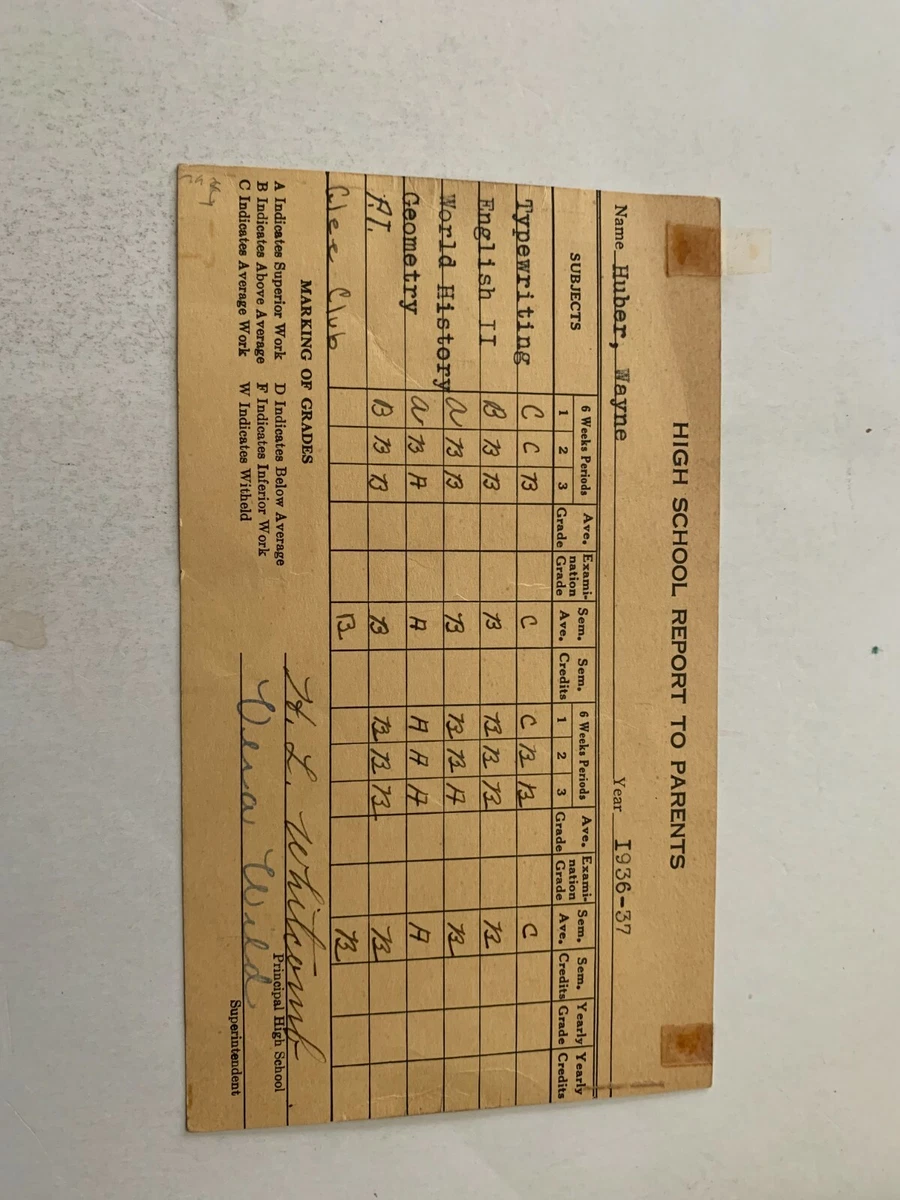 HIGH SCHOOL REPORT TO PARENTS
Name Huber, Wayne Year I936-37
SUBJECTS 6 Weeks Periods 1 2 3 Ave. Grade Exami-nation Grade Sem. Ave. Sem. Credits 6 Weeks Periods 1 2 3 Ave. Grade Exami-nation Grade Sem. Ave. Sem. Credits Yearly Grade Yearly Credits
Typewriting C C B C C B B C
English II B B B B B B B B
World History A B B B B B A B
Geometry A B A A A A A A
P.T. B B B B B B B B
Glee Club B B
MARKING OF GRADES
A Indicates Superior Work D Indicates Below Average
B Indicates Above Average F Indicates Inferior Work
C Indicates Average Work W Indicates Witheld
H. L. Whitcomb
Principal High School
Vena Wild
Superintendent